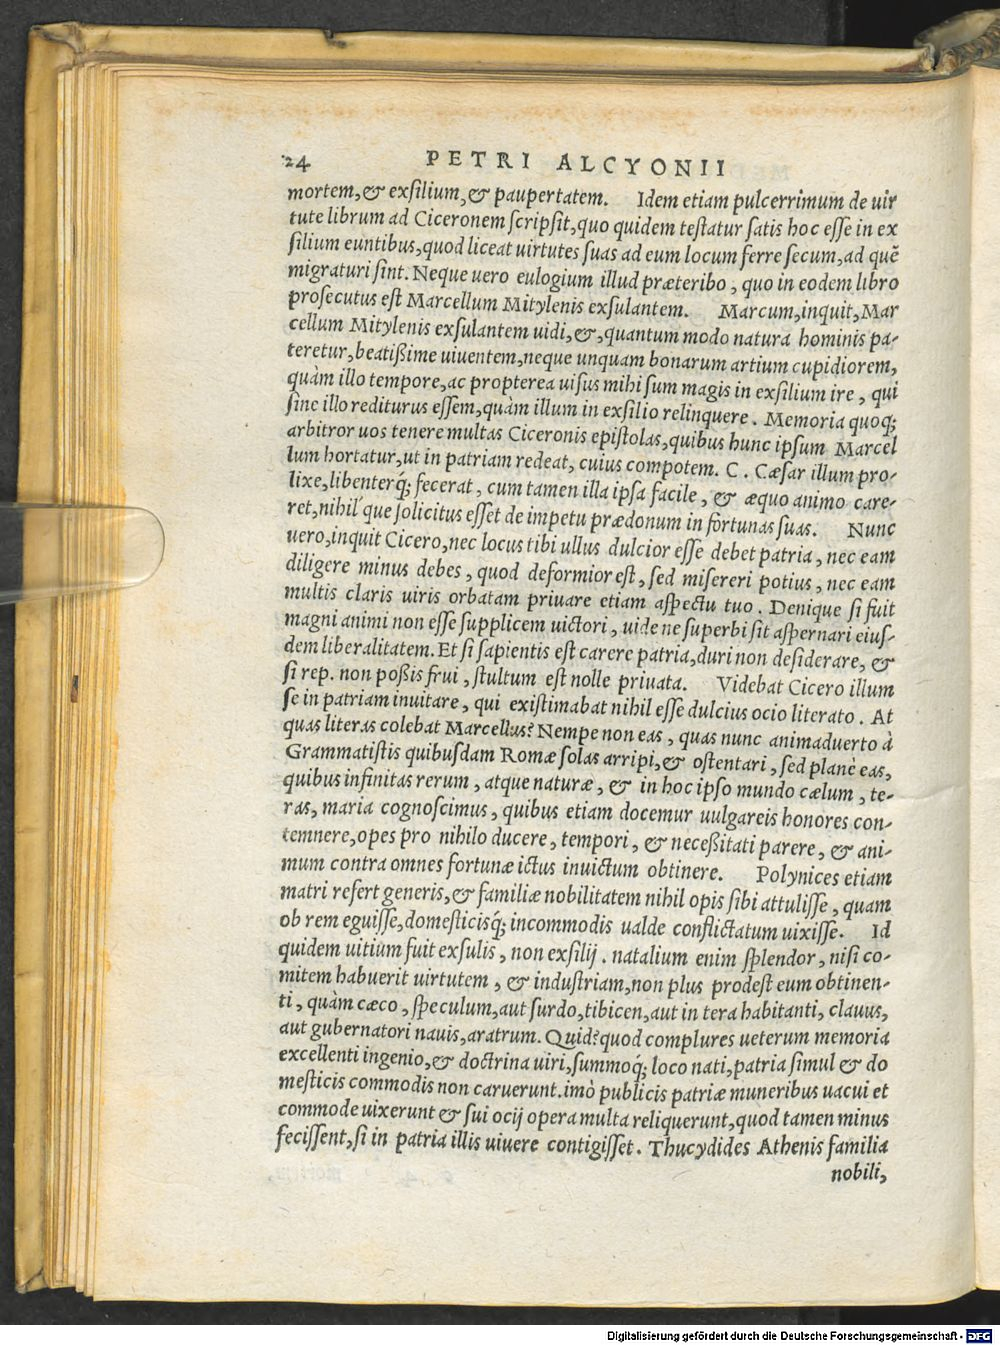 24 PETRI ALCYONII
mortem,& exsilium,& paupertatem. Idem etiam pulcerrimum de uir
tute librum ad Ciceronem scripsit,quo quidem testatur satis hoc esse in ex
silium euntibus,quod liceat uirtutes suas ad eum locum ferre secum,ad quẽ
migraturi sint. Neque uero eulogium illud præteribo, quo in eodem libro
prosecutus est Marcellum Mitylenis exsulantem. Marcum,inquit,Mar
cellum Mitylenis exsulantem uidi,&,quantum modo natura hominis pa-
teretur,beatißime uiuentem,neque unquam bonarum artium cupidiorem,
quàm illo tempore,ac propterea uisus mihi sum magis in exsilium ire, qui
sine illo rediturus essem,quàm illum in exsilio relinquere. Memoria quoq;
arbitror uos tenere multas Ciceronis epistolas,quibus hunc ipsum Marcel
lum hortatur,ut in patriam redeat, cuius compotem. C. Cæsar illum pro-
lixe,libenterq́; fecerat, cum tamen illa ipsa facile, & æquo animo care-
ret,nihil que solicitus esset de impetu prædonum in fortunas suas. Nunc
uero,inquit Cicero,nec locus tibi ullus dulcior esse debet patria, nec eam
diligere minus debes, quod deformior est, sed misereri potius, nec eam
multis claris uiris orbatam priuare etiam aspectu tuo. Denique si fuit
magni animi non esse supplicem uictori, uide ne superbi sit aspernari eius-
dem liberalitatem. Et si sapientis est carere patria,duri non desiderare, &
si rep. non poßis frui, stultum est nolle priuata. Videbat Cicero illum
se in patriam inuitare, qui existimabat nihil esse dulcius ocio literato. At
quas literas colebat Marcellus? Nempe non eas, quas nunc animaduerto à
Grammatistis quibusdam Romæ solas arripi,& ostentari, sed planè eas,
quibus infinitas rerum, atque naturæ, & in hoc ipso mundo cælum, te-
ras, maria cognoscimus, quibus etiam docemur uulgareis honores con-
temnere,opes pro nihilo ducere, tempori, & neceßitati parere, & ani-
mum contra omnes fortunæ ictus inuictum obtinere. Polynices etiam
matri refert generis,& familiæ nobilitatem nihil opis sibi attulisse, quam
ob rem eguisse,domesticisq́; incommodis ualde conflictatum uixisse. Id
quidem uitium fuit exsulis, non exsilij. natalium enim splendor, nisi co-
mitem habuerit uirtutem, & industriam,non plus prodest eum obtinen-
ti, quàm cæco, speculum,aut surdo,tibicen,aut in tera habitanti, clauus,
aut gubernatori nauis,aratrum. Quid?quod complures ueterum memoria
excellenti ingenio,& doctrina uiri,summoq́; loco nati,patria simul & do
mesticis commodis non caruerunt.imò publicis patriæ muneribus uacui et
commode uixerunt & sui ocij opera multa reliquerunt,quod tamen minus
fecissent,si in patria illis uiuere contigisset. Thucydides Athenis familia
nobili,
Digitalisierung gefördert durch die Deutsche Forschungsgemeinschaft - DFG